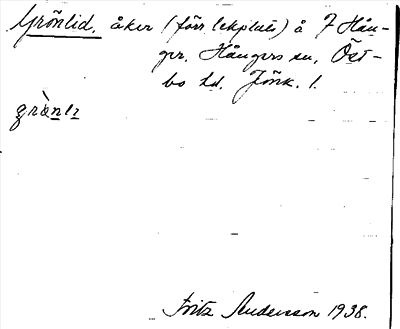 Grönlid, åker (förr lekplats) å 7 Hån-
ger, Hångers sn, Öst-
bo hd. Jönk. l.
grὼnlɩ
Fritz Andersson 1938.